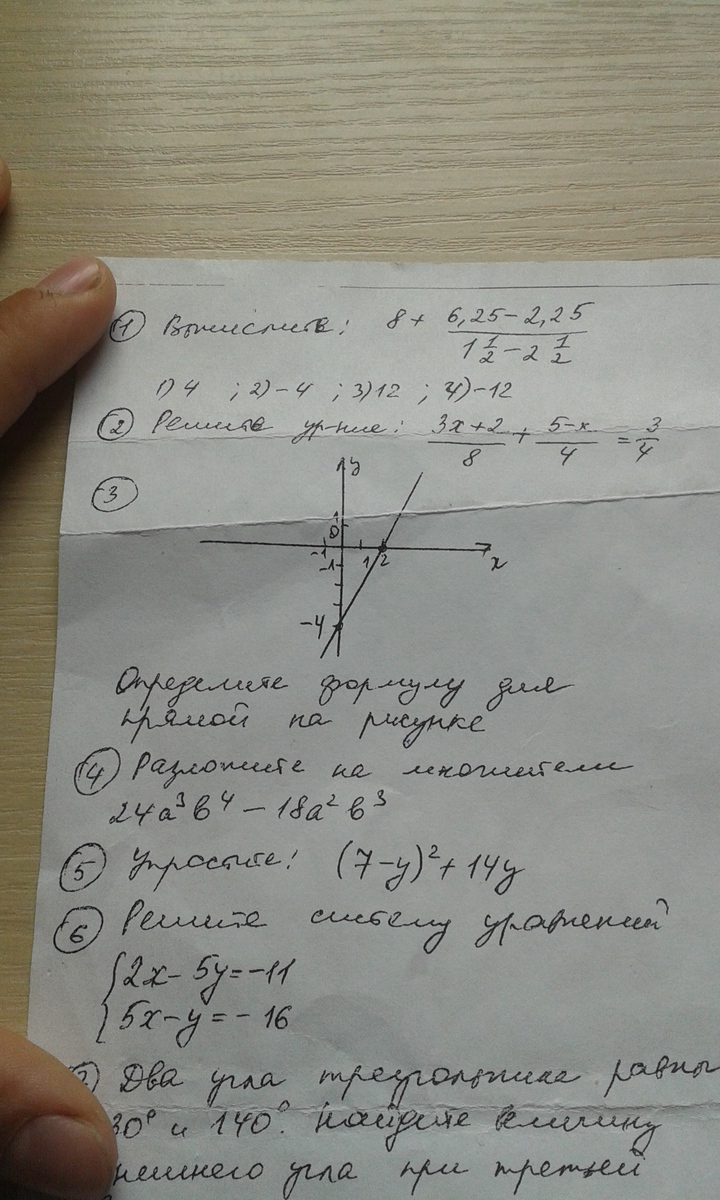 ① Вычислите: 8 + (6,25 − 2,25)/(1 1/2 − 2 1/2)
1) 4 ; 2) −4 ; 3) 12 ; 4) −12
② Решите ур-ние: (3x+2)/8 + (5−x)/4 = 3/4
③
y
1
0
−1 1 2 x
−1
−4
Определите формулу для
прямой на рисунке
④ Разложите на множители
24a³b⁴ − 18a²b³
⑤ Упростите: (7−y)² + 14y
⑥ Решите систему уравнений
{2x − 5y = −11
{5x − y = −16
Два угла треугольника равны
30° и 140°. Найдите величину
нешнего угла при третьей